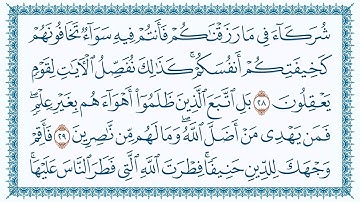 شُرَكَآءَ فِى مَا رَزَقْنَٰكُمْ فَأَنتُمْ فِيهِ سَوَآءٌ تَخَافُونَهُمْ
كَخِيفَتِكُمْ أَنفُسَكُمْ ۚ كَذَٰلِكَ نُفَصِّلُ الْءَايَٰتِ لِقَوْمٍ
يَعْقِلُونَ ٢٨ بَلِ اتَّبَعَ الَّذِينَ ظَلَمُوٓا۟ أَهْوَآءَهُم بِغَيْرِ عِلْمٍ ۖ
فَمَن يَهْدِى مَنْ أَضَلَّ اللَّهُ ۖ وَمَا لَهُم مِّن نَّٰصِرِينَ ٢٩ فَأَقِمْ
وَجْهَكَ لِلدِّينِ حَنِيفًا ۚ فِطْرَتَ اللَّهِ الَّتِى فَطَرَ النَّاسَ عَلَيْهَا ۚ